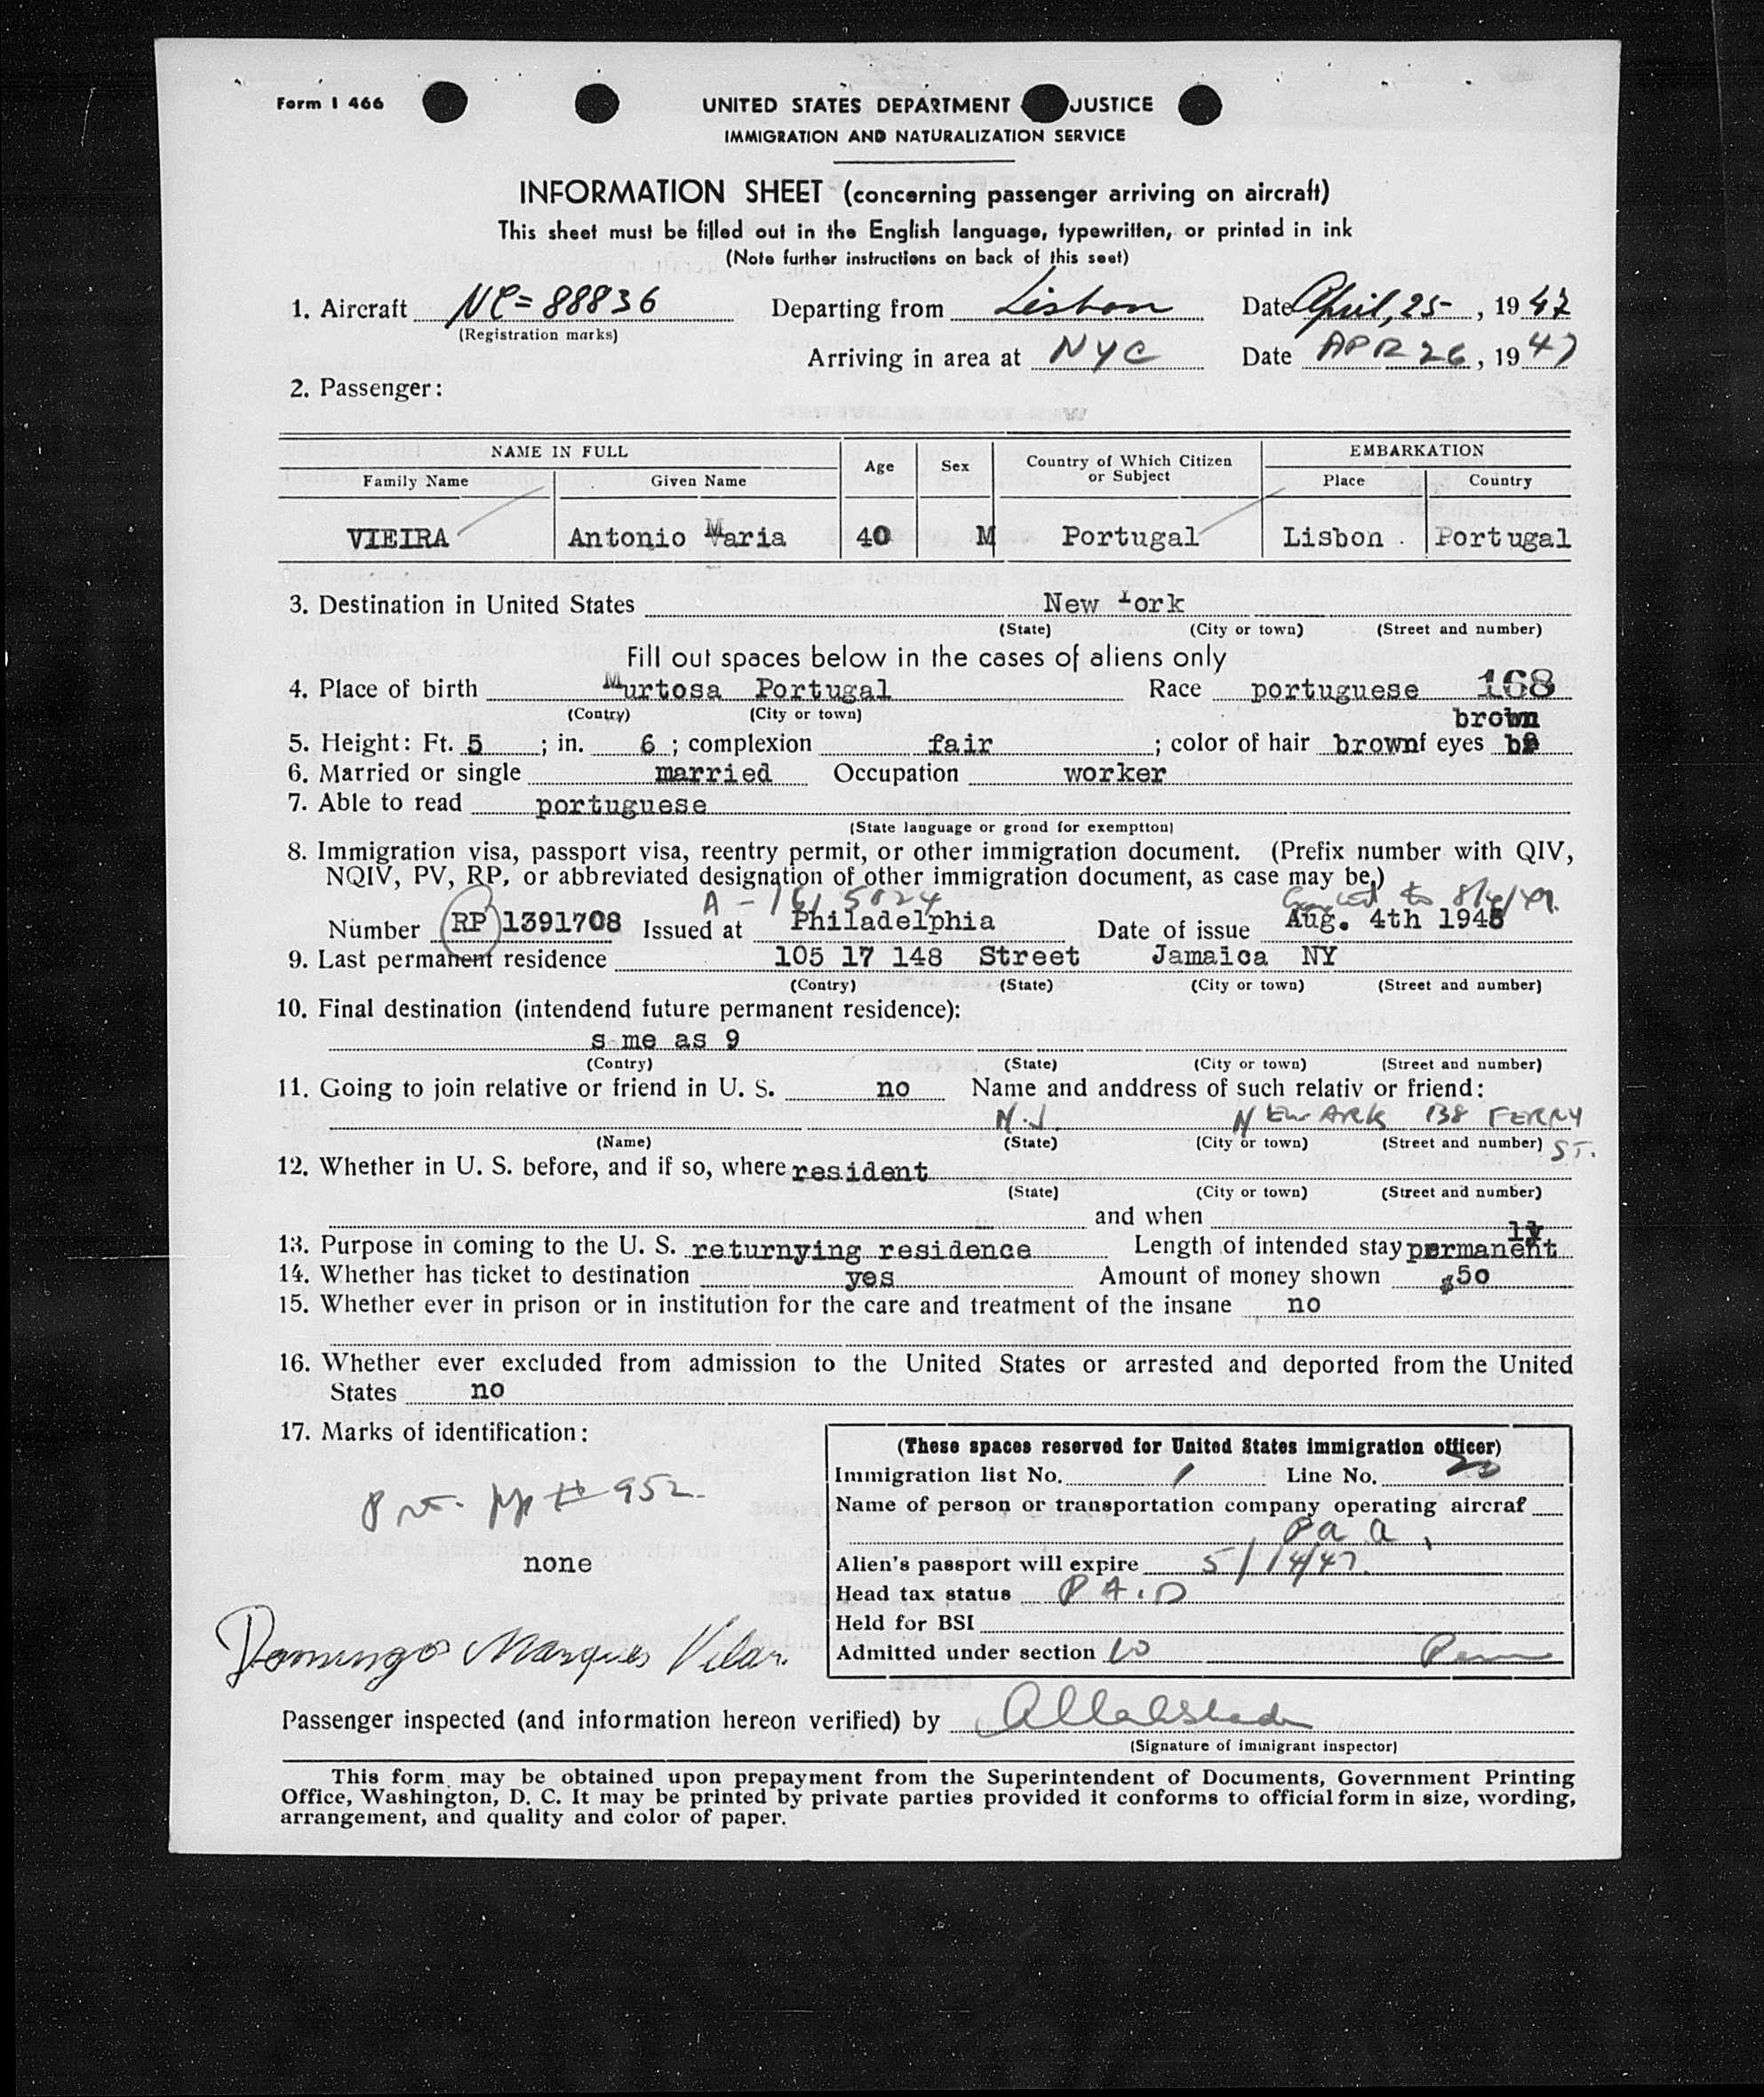 Form I 466
UNITED STATES DEPARTMENT JUSTICE
IMMIGRATION AND NATURALIZATION SERVICE
INFORMATION SHEET (concerning passenger arriving on aircraft)
This sheet must be filled out in the English language, typewritten, or printed in ink
(Note further instructions on back of this seet)
1. Aircraft NC=88836 Departing from Lisbon Date April, 25-, 1947
(Registration marks)
Arriving in area at NYC Date APR 26, 1947
2. Passenger:
NAME IN FULL Age Sex Country of Which Citizen or Subject EMBARKATION
Family Name Given Name Place Country
VIEIRA Antonio Maria 40 M Portugal Lisbon Portugal
3. Destination in United States New York
(State) (City or town) (Street and number)
Fill out spaces below in the cases of aliens only
4. Place of birth Murtosa Portugal Race portuguese 168
(Contry) (City or town)
brown
5. Height: Ft. 5 ; in. 6 ; complexion fair ; color of hair brownf eyes
6. Married or single married Occupation worker
7. Able to read portuguese
(State language or grond for exemption)
8. Immigration visa, passport visa, reentry permit, or other immigration document. (Prefix number with QIV,
NQIV, PV, RP, or abbreviated designation of other immigration document, as case may be,)
A - 1615824 to 8/4/47.
Number RP 1391708 Issued at Philadelphia Date of issue Aug. 4th 1945
9. Last permanent residence 105 17 148 Street Jamaica NY
(Contry) (State) (City or town) (Street and number)
10. Final destination (intendend future permanent residence):
s me as 9
(Contry) (State) (City or town) (Street and number)
11. Going to join relative or friend in U. S. no Name and anddress of such relativ or friend:
N.J. NEWARK 138 FERRY
(Name) (State) (City or town) (Street and number) ST.
12. Whether in U. S. before, and if so, where resident
(State) (City or town) (Street and number)
and when
ly
13. Purpose in coming to the U. S. returnying residence Length of intended stay permanent
14. Whether has ticket to destination yes Amount of money shown $50
15. Whether ever in prison or in institution for the care and treatment of the insane no
16. Whether ever excluded from admission to the United States or arrested and deported from the United
States no
17. Marks of identification:
(These spaces reserved for United States immigration officer)
Immigration list No. 1 Line No. 20
Port. pp # 952.
Name of person or transportation company operating aircraf
P a a.
none
Alien's passport will expire 5/14/47.
Head tax status PAID
Held for BSI
Domingos Marques Vilar.
Admitted under section 10 Perm
Passenger inspected (and information hereon verified) by
(Signature of immigrant inspector)
This form may be obtained upon prepayment from the Superintendent of Documents, Government Printing
Office, Washington, D. C. It may be printed by private parties provided it conforms to official form in size, wording,
arrangement, and quality and color of paper.